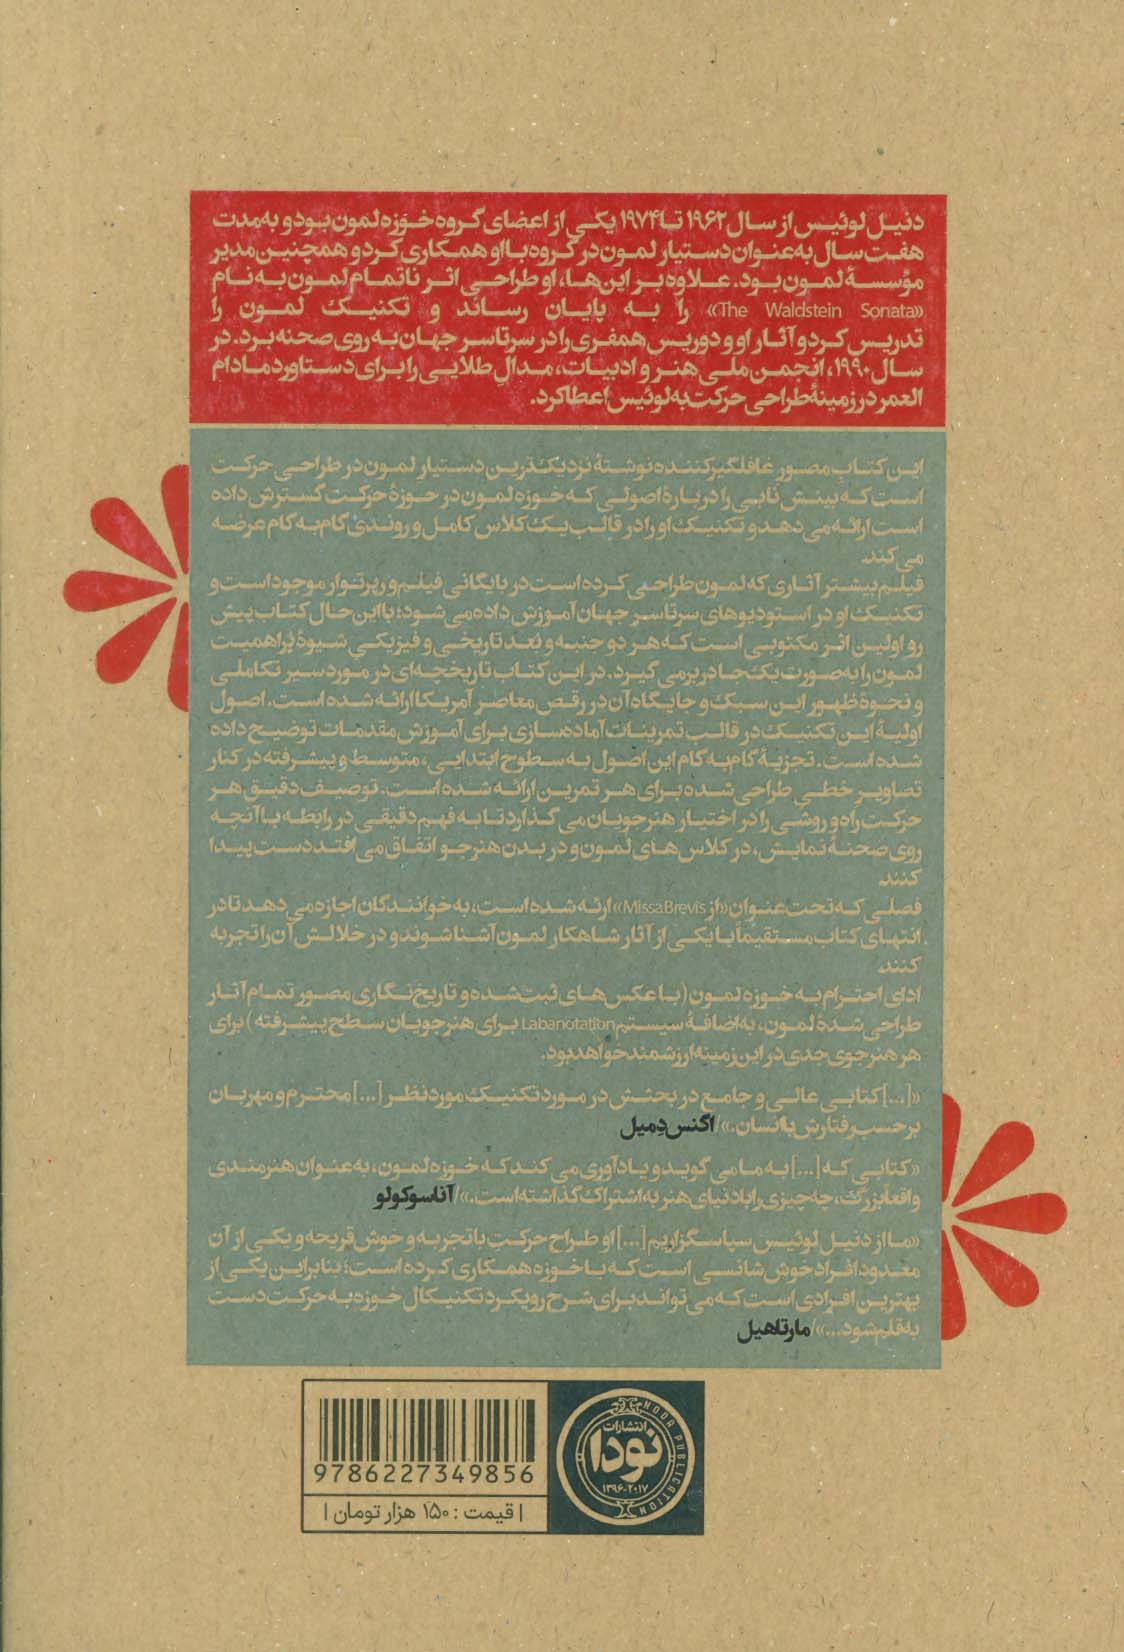 دنیل لوئیس از سال ۱۹۶۲ تا ۱۹۷۴ یکی از اعضای گروه خوزه لمون بود و به مدت
هفت سال به عنوان دستیار لمون در گروه با او همکاری کرد و همچنین مدیر
مؤسسهٔ لمون بود. علاوه بر این‌ها، او طراحی اثر ناتمام لمون به نام
«The Waldstein Sonata» را به پایان رساند و تکنیک لمون را
تدریس کرد و آثار او و دوریس همفری را در سرتاسر جهان به روی صحنه برد. در
سال ۱۹۹۰، انجمن ملی هنر و ادبیات، مدال طلایی را برای دستاورد مادام
العمر در زمینهٔ طراحی حرکت به لوئیس اعطا کرد.
این کتاب مصور غافلگیرکننده نوشتهٔ نزدیک‌ترین دستیار لمون در طراحی حرکت
است که بینش نابی را دربارهٔ اصولی که خوزه لمون در حوزهٔ حرکت گسترش داده
است ارائه می‌دهد و تکنیک او را در قالب یک کلاس کامل و روندی گام به گام عرضه
می‌کند.
فیلم بیشتر آثاری که لمون طراحی کرده است در بایگانی فیلم و رپرتوار موجود است و
تکنیک او در استودیوهای سرتاسر جهان آموزش داده می‌شود؛ با این حال کتاب پیش
رو اولین اثر مکتوبی است که هر دو جنبه و بُعد تاریخی و فیزیکیِ شیوهٔ پراهمیت
لمون را به صورت یک‌جا در برمی‌گیرد. در این کتاب تاریخچه‌ای در مورد سیر تکاملی
و نحوهٔ ظهور این سبک و جایگاه آن در رقص معاصر آمریکا ارائه شده است. اصول
اولیهٔ این تکنیک در قالب تمرینات آماده‌سازی برای آموزش مقدمات توضیح داده
شده است. تجزیهٔ گام به گام این اصول به سطوح ابتدایی، متوسط و پیشرفته در کنار
تصاویر خطی طراحی شده برای هر تمرین ارائه شده است. توصیف دقیق هر
حرکت راه و روشی را در اختیار هنرجویان می‌گذارد تا به فهم دقیقی در رابطه با آنچه
روی صحنهٔ نمایش، در کلاس‌های لمون و در بدن هنرجو اتفاق می‌افتد دست پیدا
کنند.
فصلی که تحت عنوان «از Missa Brevis» ارئه شده است، به خوانندگان اجازه می‌دهد تا در
انتهای کتاب مستقیماً با یکی از آثار شاهکار لمون آشنا شوند و در خلالش آن را تجربه
کنند.
ادای احترام به خوزه لمون (با عکس‌های ثبت شده و تاریخ‌نگاری مصور تمام آثار
طراحی شدهٔ لمون، به اضافهٔ سیستم Labanotation برای هنرجویان سطح پیشرفته) برای
هر هنرجوی جدی در این زمینه ارزشمند خواهد بود.
«[...] کتابی عالی و جامع در بحثش در مورد تکنیک مورد نظر [...] محترم و مهربان
برحسب رفتارش با انسان.»/ اگنس دِمیل
«کتابی که [...] به ما می‌گوید و یادآوری می‌کند که خوزه لمون، به عنوان هنرمندی
واقعاً بزرگ، چه چیزی را با دنیای هنر به اشتراک گذاشته است.»/ آنا سوکولو
«ما از دنیل لوئیس سپاسگزاریم [...] او طراح حرکتِ با تجربه و خوش‌قریحه و یکی از آن
معدود افراد خوش‌شانسی است که با خوزه همکاری کرده است؛ بنابراین یکی از
بهترین افرادی است که می‌تواند برای شرح رویکرد تکنیکال خوزه به حرکت دست
به قلم شود...»/ مارتا هیل
NODA PUBLICATION
انتشارات
نودا
۱۳۹۶-۲۰۱۷
9786227349856
| قیمت : ۱۵۰ هزار تومان |